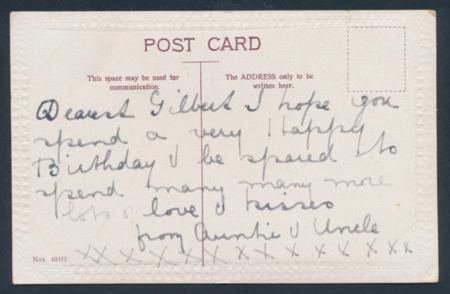 POST CARD
This space may be used for communication.
The ADDRESS only to be written here.
Dearest Gilbert I hope you
spend a very Happy
Birthday & be spared to
spend many many more
lots of love & kisses
from Auntie & Uncle
x x x x x x x x x x x x x x x x